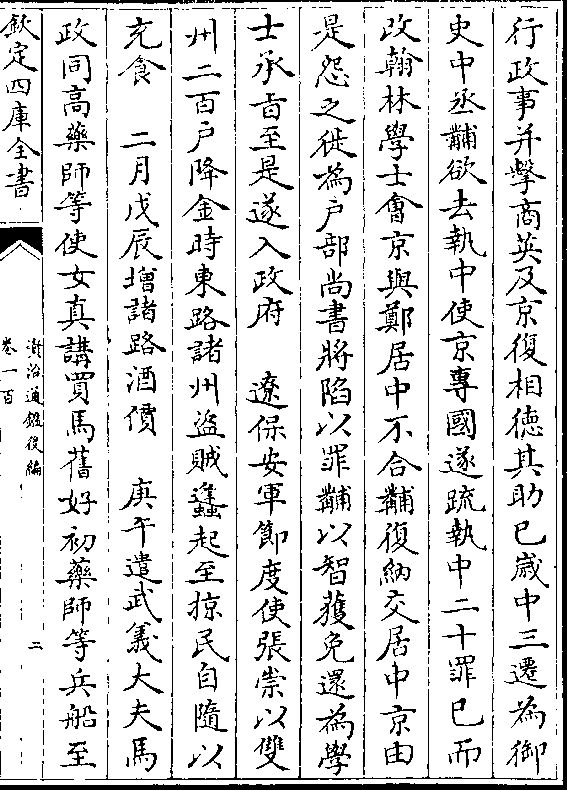 行政事并擊商英及京復相徳其助已嵗中三遷為御
史中丞黼欲去執中使京專國遂疏執中二十罪已而
改翰林學士會京與鄭居中不合黼復納交居中京由
是怨之徙為户部尚書將陷以罪黼以智獲免還為學
士承旨至是遂入政府　遼保安軍節度使張崇以雙
州二百户降金時東路諸州盗賊蠭起至掠民自隨以
充食　二月戊辰增諸路酒價　庚午遣武義大夫馬
政同高藥師等使女真講買馬舊好初藥師等兵船至
欽定四庫全書
資治通鑑後編
卷一百
二